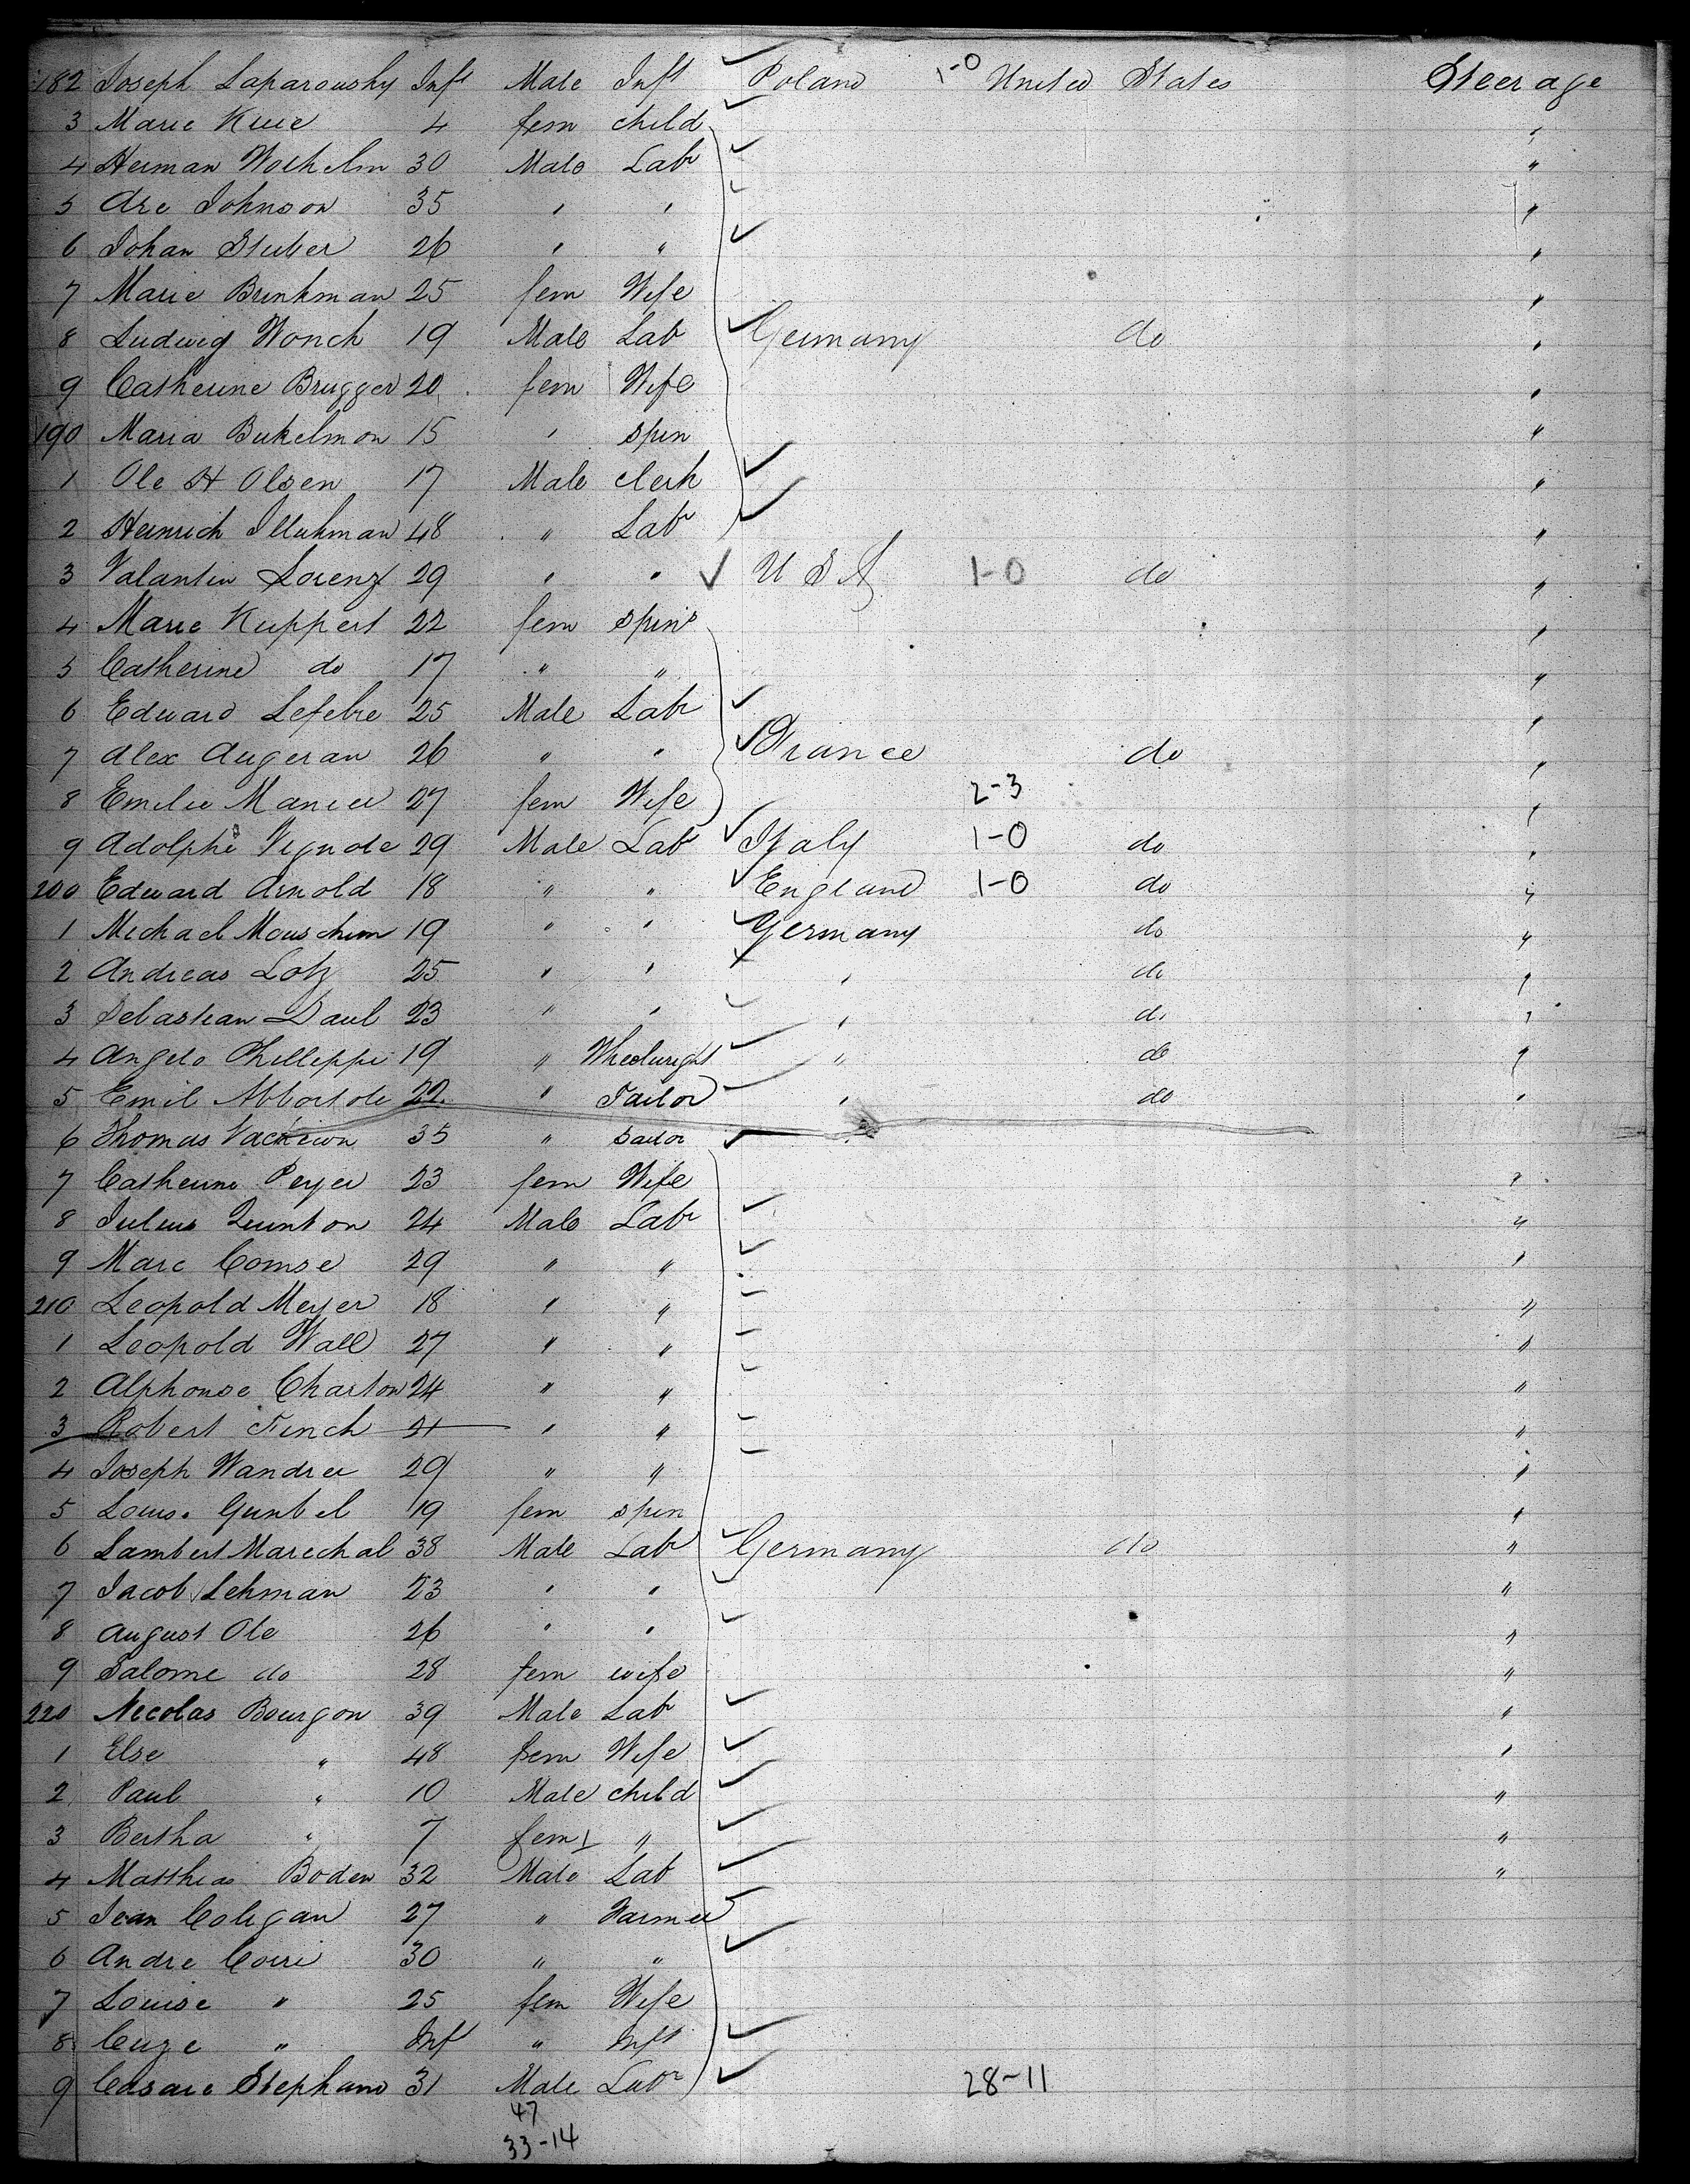 182 Joseph Laparowsky Inft Male Inft Poland 1-0 United States Steerage
3 Marie Krie 4 fem child "
4 Herman Wolhelm 30 Male Lab "
5 Are Johnson 35 " " "
6 Johan Stuber 26 " " "
7 Marie Brinkman 25 fem Wife "
8 Ludwig Wonch 19 Male Lab Germany do "
9 Catherine Brugger 20 fem Wife "
190 Maria Bukelmon 15 " spin "
1 Ole H Olsen 17 Male clerk "
2 Heinrich 48 " Lab "
3 Valantin Lorenz 29 " " U S A 1-0 do "
4 Marie Kuppert 22 fem spins "
5 Catherine do 17 " " "
6 Edward Lefebre 25 Male Lab "
7 Alex Augeran 26 " " France do "
8 Emilie Manier 27 fem Wife 2-3 "
9 Adolphe Vignole 29 Male Lab Italy 1-0 do "
200 Edward Arnold 18 " " England 1-0 do "
1 Michael Mouschim 19 " " Germany do "
2 Andreas Lotz 25 " " " do "
3 Sebastian Daul 23 " " " do "
4 Angelo Philleppi 19 " Wheelwright " do "
5 Emil 22 " Tailor " do "
6 Thomas 35 " Sailor
7 Catherine Peyer 23 fem Wife "
8 Julius Quinton 24 Male Lab "
9 Marc Comse 29 " " "
210 Leopold Meyer 18 " " "
1 Leopold Wall 27 " " "
2 Alphonse Charton 24 " " "
3 Robert Finch 21 " " "
4 Joseph Wandrer 29 " " "
5 Louise Guntel 19 fem spin "
6 Lambert Marechal 38 Male Lab Germany do "
7 Jacob Lehman 23 " " "
8 August Ole 26 " " "
9 Salome do 28 fem wife "
220 Necolas Bourgon 39 Male Lab "
1 Else " 48 fem Wife "
2 Paul " 10 Male child "
3 Bertha " 7 fem " "
4 Matthias Boden 32 Male Lab "
5 Jean Coligan 27 " Farmer
6 Andre Corri 30 " "
7 Louise " 25 fem Wife
8 " Inf " Inft
9 Casare Stephano 31 Male Lab 28-11
47
33-14